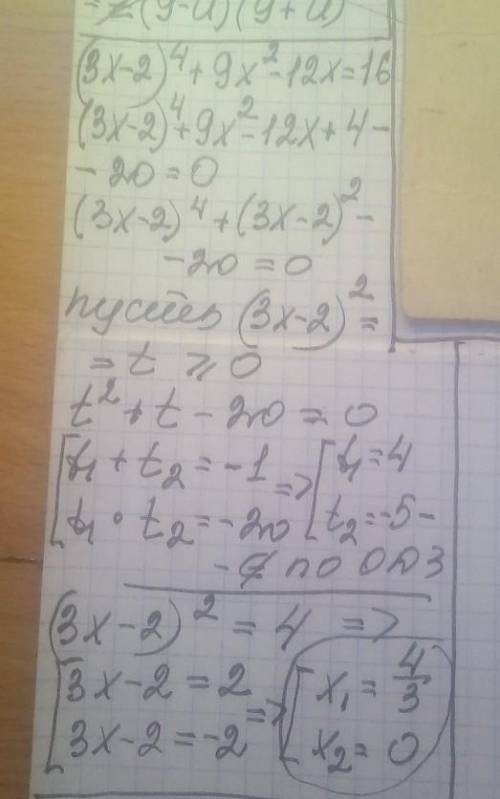 = 2(9-u)(9+u)
(3x-2)⁴+9x²-12x=16
(3x-2)⁴+9x²-12x+4-
-20=0
(3x-2)⁴+(3x-2)²-
-20=0
пусть (3x-2)²=
=t ⩾ 0
t²+t-20=0
[t₁+t₂=-1 => [t₁=4
[t₁•t₂=-20 [t₂=-5-
-∉ по ОДЗ
(3x-2)²=4 =>
[3x-2=2 => [x₁=4/3
[3x-2=-2 [x₂=0